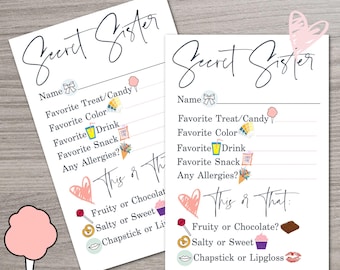 Secret Sister
Name
Favorite Treat/Candy
Favorite Color
Favorite Drink
Favorite Snack
Any Allergies?
This or That:
Fruity or Chocolate?
Salty or Sweet
Chapstick or Lipgloss
Secret Sister
Name
Favorite Treat/Candy
Favorite Color
Favorite Drink
Favorite Snack
Any Allergies?
This or That:
Fruity or Chocolate?
Salty or Sweet
Chapstick or Lipgloss